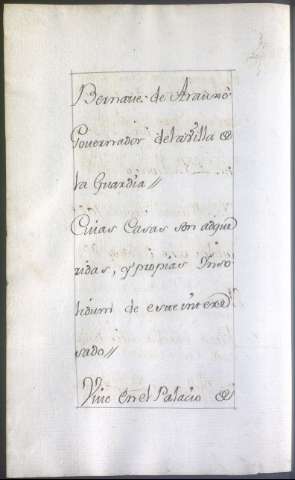 Bernave de Araujo
Governador de la villa de
la Guardia//
Cuias Casas son adque
ridas, y propias Inso
lidum de este intere
sado//
Vive en el Palacio de